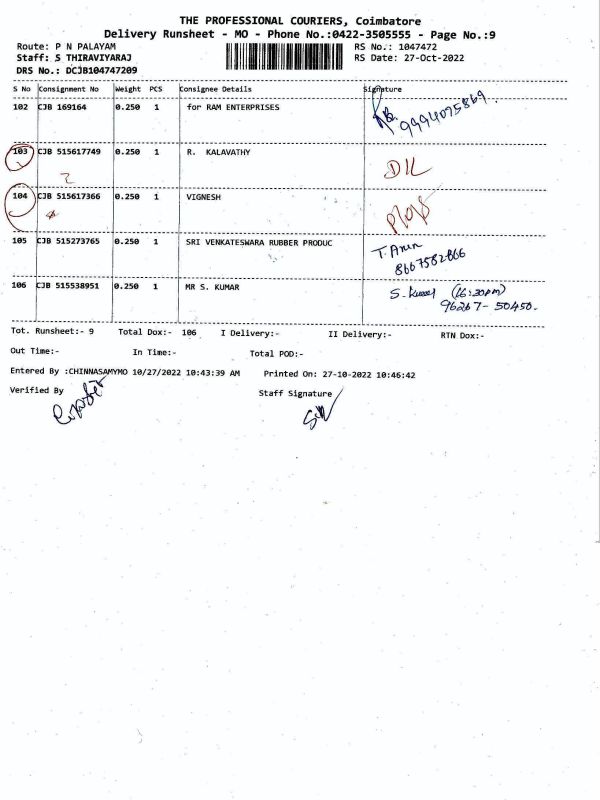 THE PROFESSIONAL COURIERS, Coimbatore
Delivery Runsheet - MO - Phone No.:0422-3505555 - Page No.:9
Route: P N PALAYAM RS No.: 1047472
Staff: S THIRAVIYARAJ RS Date: 27-Oct-2022
DRS No.: DCJB104747209
S No Consignment No Weight PCS Consignee Details Signature
102 CJB 169164 0.250 1 for RAM ENTERPRISES
9994075869
103 CJB 515617749 0.250 1 R. KALAVATHY
D/L
104 CJB 515617366 0.250 1 VIGNESH
105 CJB 515273765 0.250 1 SRI VENKATESWARA RUBBER PRODUC T. Arun
8667582866
106 CJB 515538951 0.250 1 MR S. KUMAR S. Kumar (16:30pm)
96267-50450.
Tot. Runsheet:- 9 Total Dox:- 106 I Delivery:- II Delivery:- RTN Dox:-
Out Time:- In Time:- Total POD:-
Entered By :CHINNASAMYMO 10/27/2022 10:43:39 AM Printed On: 27-10-2022 10:46:42
Verified By Staff Signature